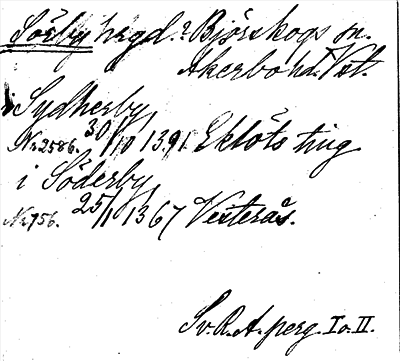 Sörby hägd.? Björskogs sn.
Åkerbo hd. Vst.
i Sydherby
Nr 2586. 30/10 1391 Eklöts ting
i Söderby
Nr 756. 25/1 1367 Vesterås.
Sv. R. A. perg. I o. II.